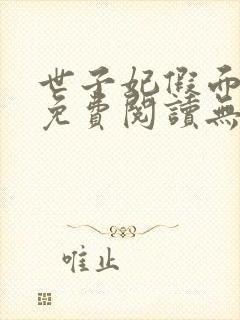 世子妃假而
免費閱讀無
唯止